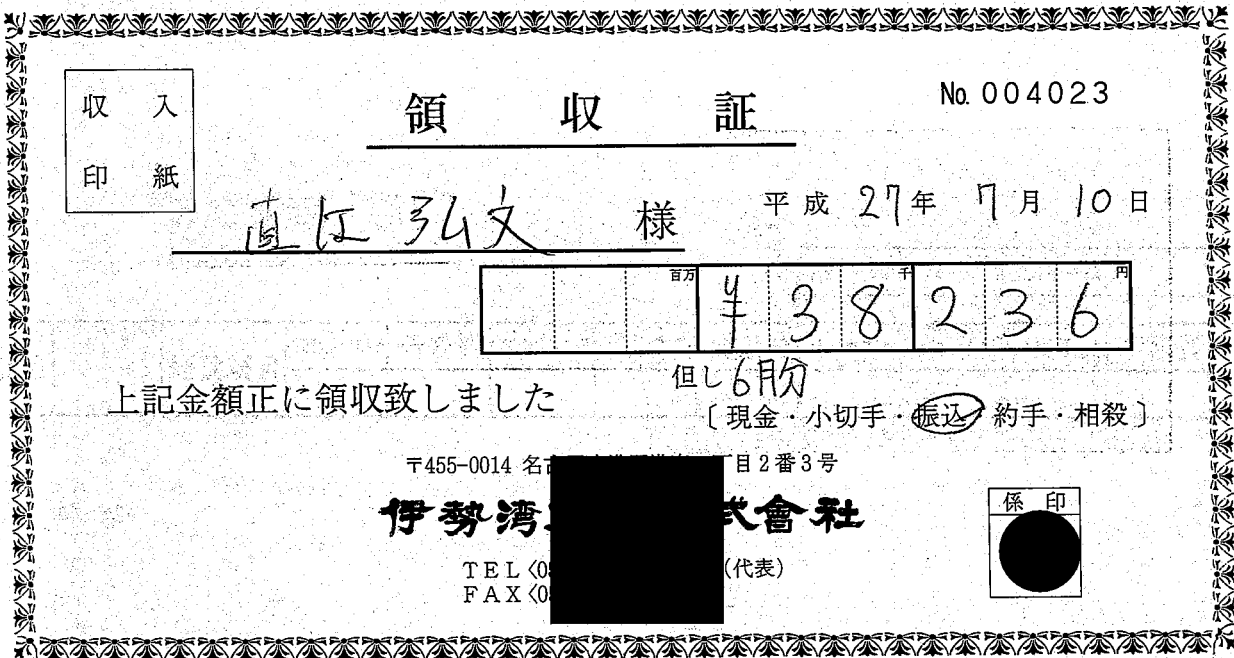 収入
印紙
領収証
No. 004023
直江弘文 様
平成27年7月10日
百万 千 円
¥38236
上記金額正に領収致しました
但し6月分
〔現金・小切手・振込・約手・相殺〕
〒455-0014 名 目2番3号
伊勢湾 式會社
TEL〈0 (代表)
FAX〈0
係印